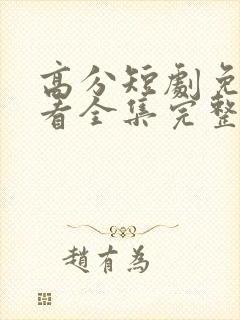 高分短劇免
看全集完整
趙有為